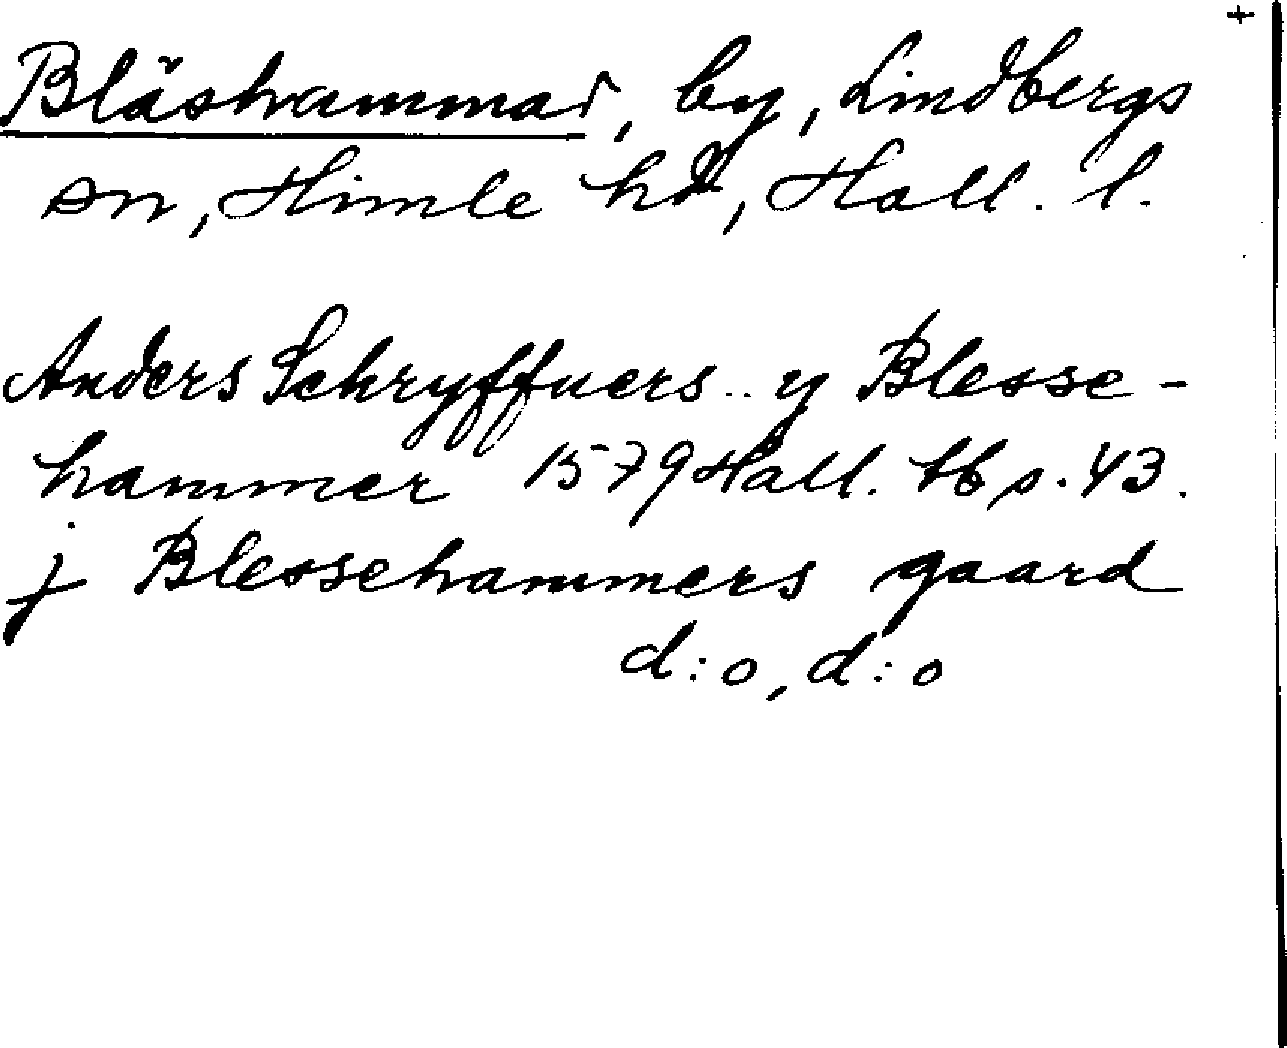 +
Bläshammar, by, Lindbergs
sn, Himle hd, Hall. l.
Anders Schryffuers .. y Blesse-
hammer 1579 Hall. tb s. 43.
j Blessehammers gaard
d:o, d:o